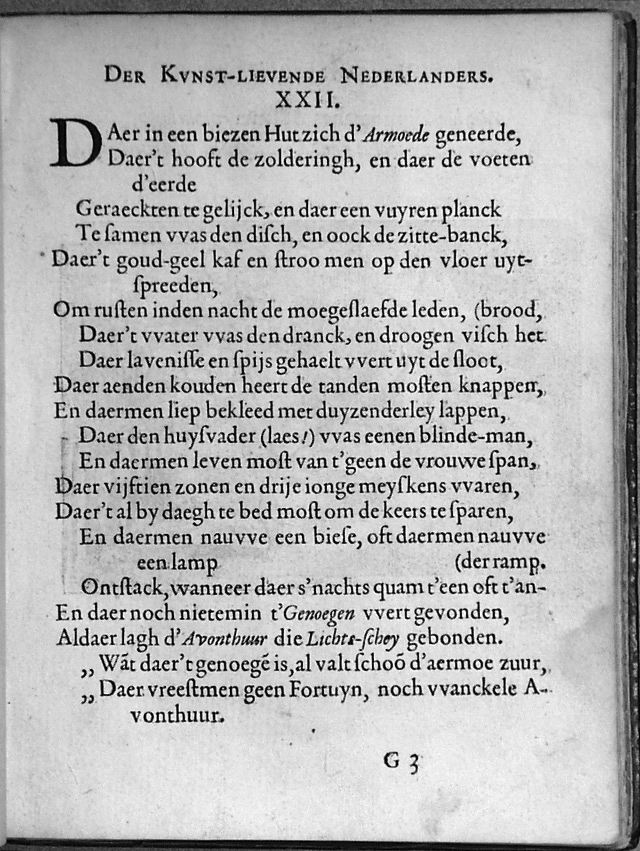 DER KVNST-LIEVENDE NEDERLANDERS.
XXII.
DAer in een biezen Hut zich d'Armoede geneerde,
Daer't hooft de zolderingh, en daer de voeten
d'eerde
Geraeckten te gelijck, en daer een vuyren planck
Te samen vvas den disch, en oock de zitte-banck,
Daer't goud-geel kaf en stroo men op den vloer uyt-
spreeden,
Om rusten inden nacht de moegeslaefde leden, (brood,
Daer't vvater vvas den dranck, en droogen visch het
Daer lavenisse en spijs gehaelt vvert uyt de sloot,
Daer aenden kouden heert de tanden mosten knappen,
En daermen liep bekleed met duyzenderley lappen,
Daer den huysvader (laes!) vvas eenen blinde-man,
En daermen leven most van t'geen de vrouwe span,
Daer vijftien zonen en drije ionge meyskens vvaren,
Daer't al by daegh te bed most om de keers te sparen,
En daermen nauvve een biese, oft daermen nauvve
een lamp (der ramp.
Ontstack, wanneer daer s'nachts quam t'een oft t'an-
En daer noch nietemin t'Genoegen vvert gevonden,
Aldaer lagh d'Avonthuur die Lichte-schey gebonden.
,, Wãt daer't genoegẽ is, al valt schoõ d'aermoe zuur,
,, Daer vreestmen geen Fortuyn, noch vvanckele A-
vonthuur.
G 3